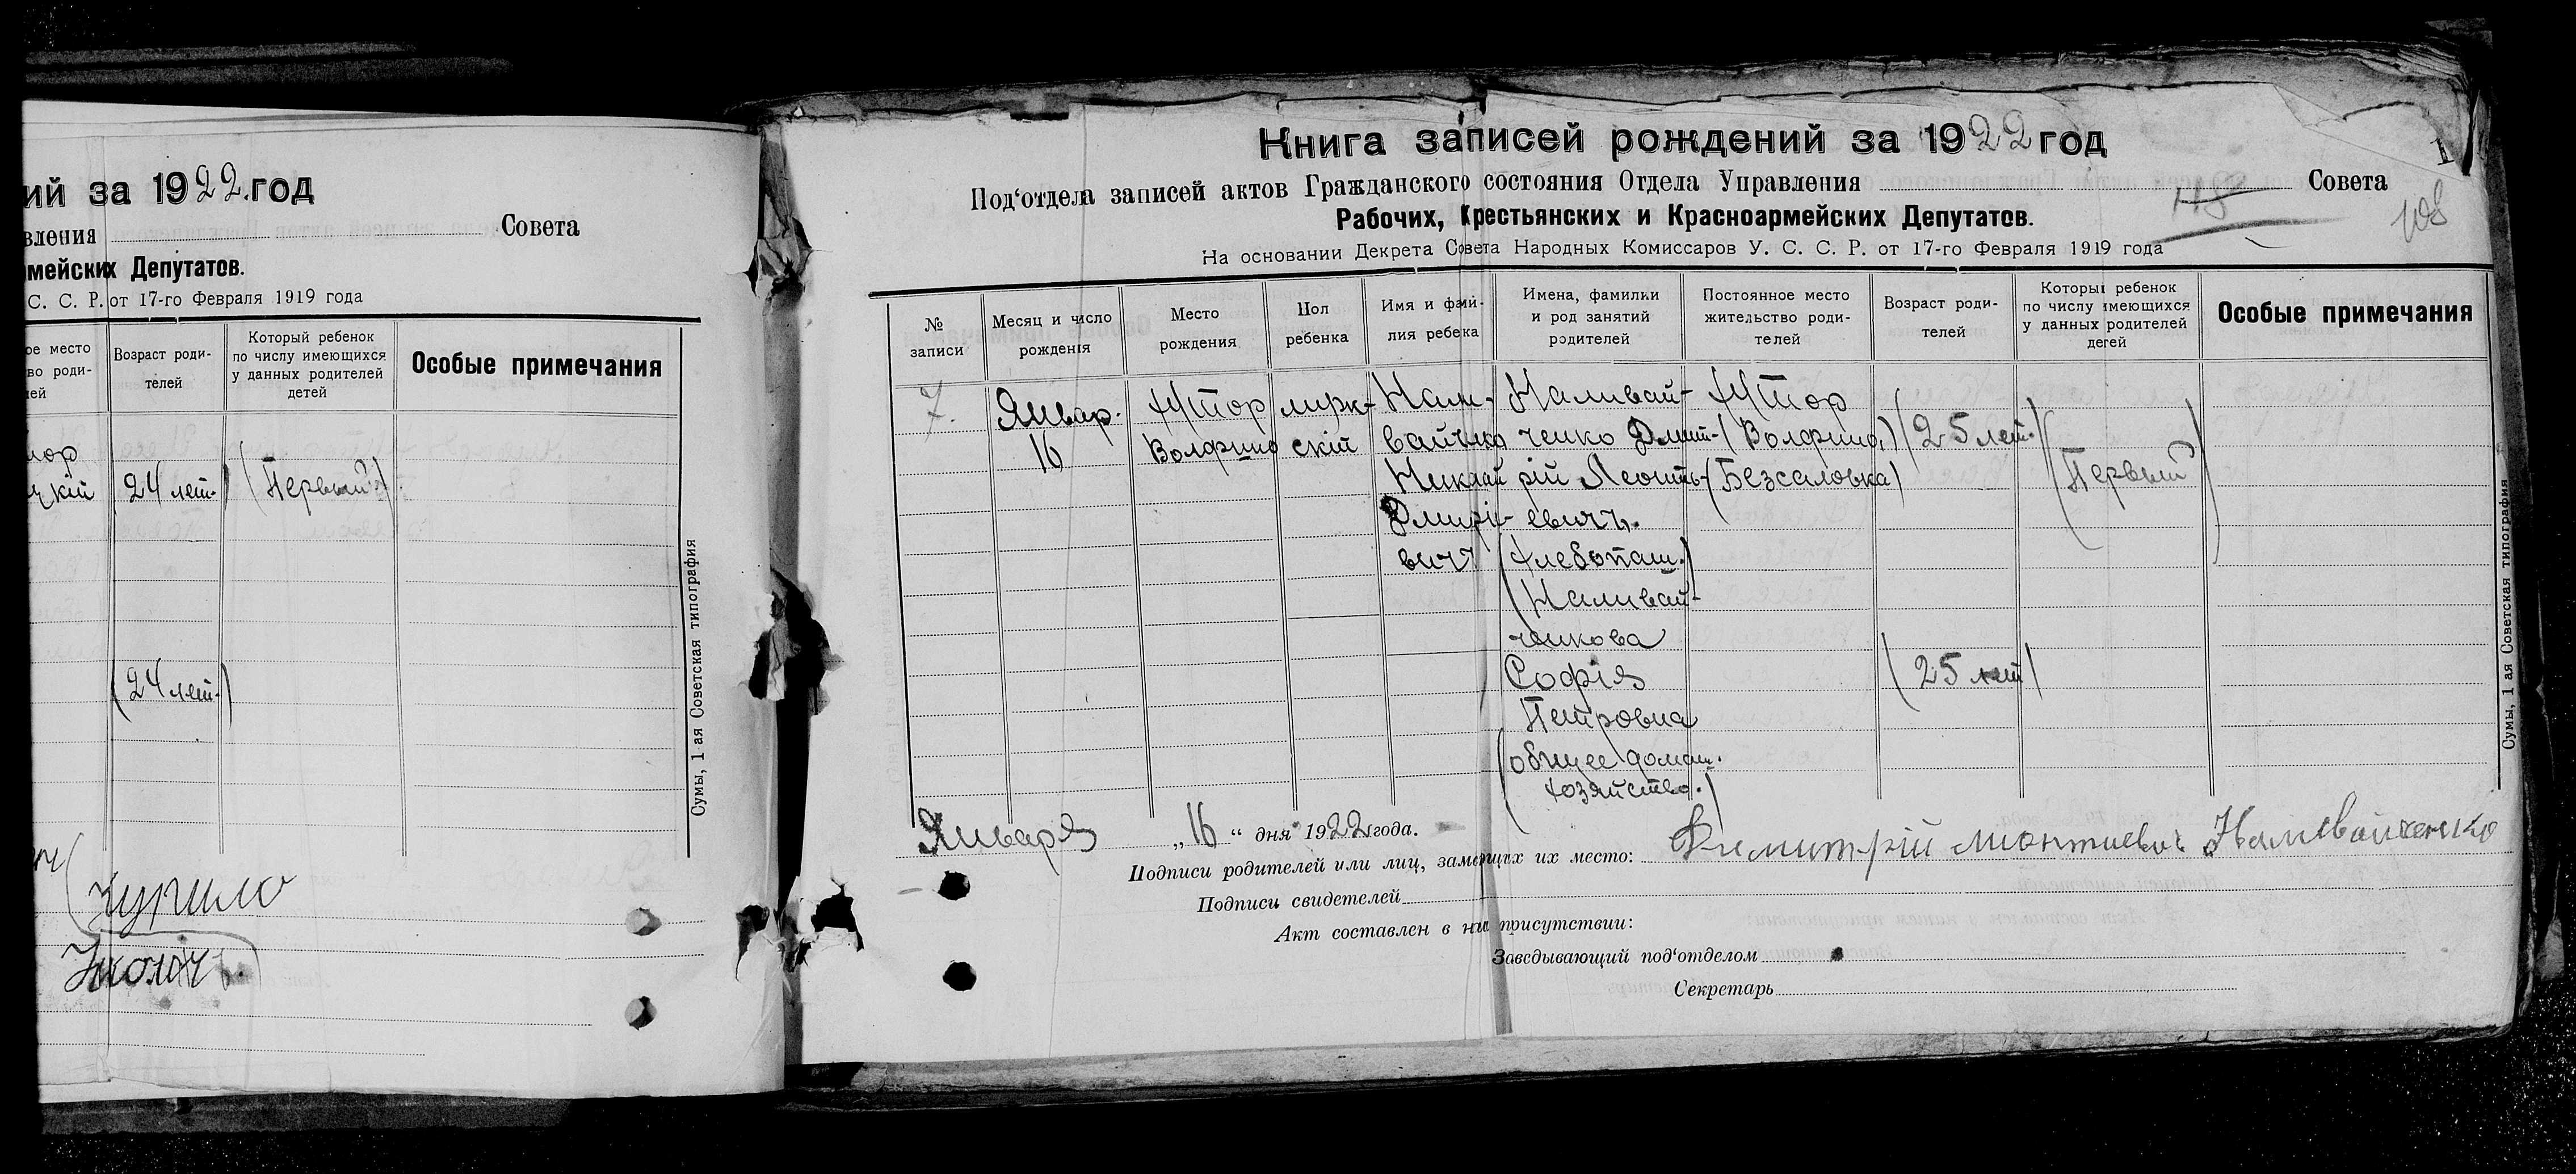 ий за 1922 год
вления Совета
мейских Депутатов.
С. С. Р. от 17-го Февраля 1919 года
ое место
во роди-
лей
Возраст роди-
телей
Который ребенок
по числу имеющихся
у данных родителей
детей
Особые примечания
тор
цкій
24 лет.
(Первый)
(24 лет.)
Сумы, 1-ая Советская типография
Книга записей рождений за 1922 год
Под'отдела записей актов Гражданского состояния Отдела Управления Совета
Рабочих, Крестьянских и Красноармейских Депутатов.
На основании Декрета Совета Народных Комиссаров У. С. С. Р. от 17-го Февраля 1919 года
1
118
108
№
записи
Месяц и число
рождения
Место
рождения
Пол
ребенка
Имя и фами-
лия ребенка
Имена, фамилии
и род занятий
родителей
Постоянное место
жительство роди-
телей
Возраст роди-
телей
Который ребенок
по числу имеющихся
у данных родителей
детей
Особые примечания
7.
Январ.
16
Хутор
Волфино
мужс-
скій
Нали-
вайченко
Николай
Дмитрі-
вичъ
Наливай-
ченко Дмит-
рій Леонть-
евичъ.
(Хлебопаш.)
(Наливай-
ченкова
Софія
Петровна
(общее домаш.
хозяйство.)
Хутор
(Волфино)
(Безсаловка)
(25 лет.)
(25 лет)
(Первый)
Января „16“ дня 1922 года.
Подписи родителей или лиц, замещих их место: Димитрій Лионтиевич Наливайченко
Подписи свидетелей
Акт составлен в на присутствии:
Заведывающий под'отделом
Секретарь
Сумы, 1 ая Советская типография